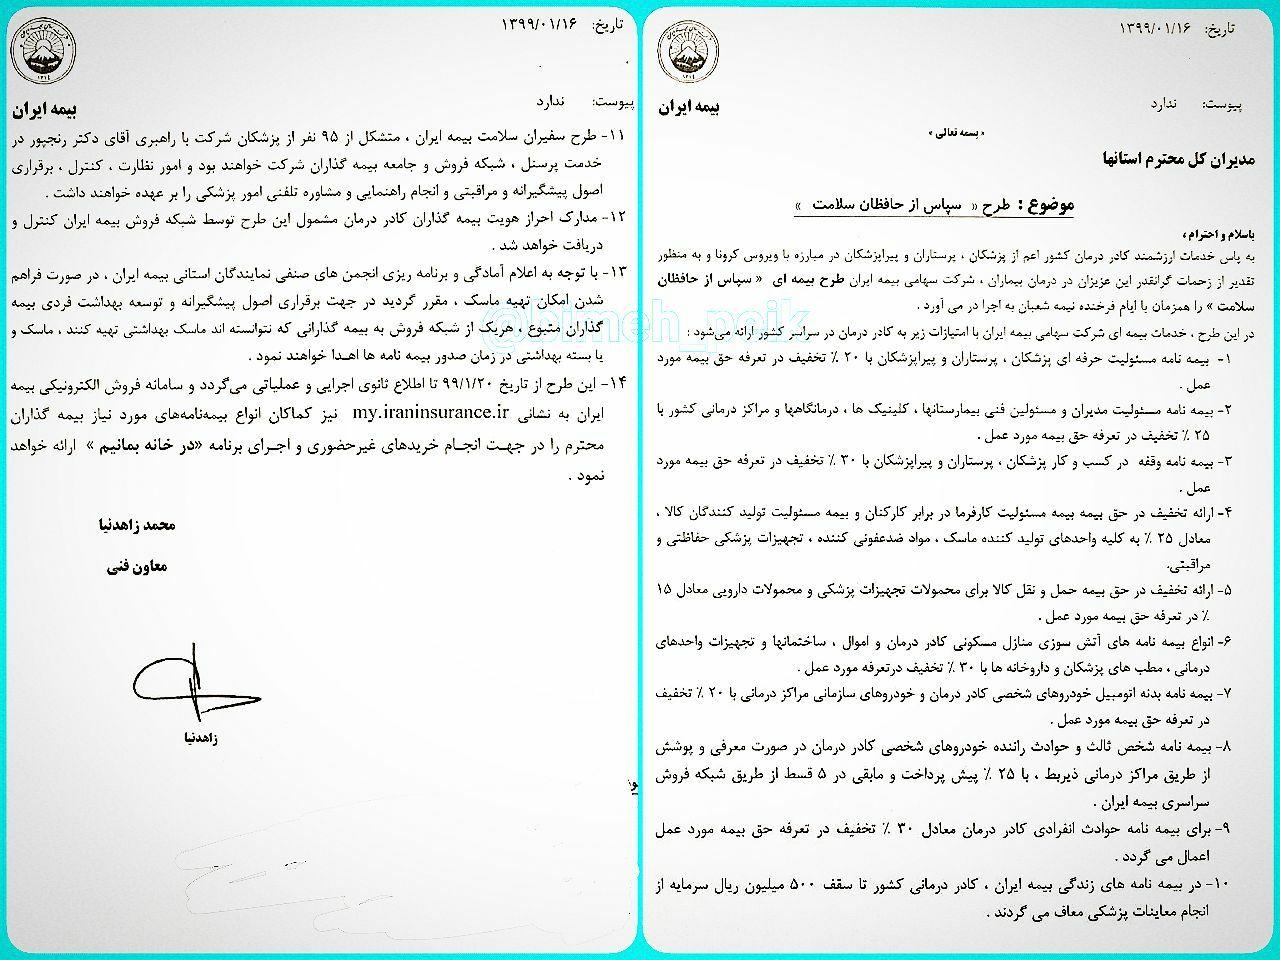 تاریخ: ۱۳۹۹/۰۱/۱۶
۱۳۱۴
پیوست: ندارد
بیمه ایران
« بسمه تعالی »
مدیران کل محترم استانها
موضوع : طرح « سپاس از حافظان سلامت »
باسلام و احترام ،
به پاس خدمات ارزشمند کادر درمان کشور اعم از پزشکان ، پرستاران و پیراپزشکان در مبارزه با ویروس کرونا و به منظور
تقدیر از زحمات گرانقدر این عزیزان در درمان بیماران ، شرکت سهامی بیمه ایران طرح بیمه ای « سپاس از حافظان
سلامت » را همزمان با ایام فرخنده نیمه شعبان به اجرا در می آورد .
در این طرح ، خدمات بیمه ای شرکت سهامی بیمه ایران با امتیازات زیر به کادر درمان در سراسر کشور ارائه می‌شود :
۱- بیمه نامه مسئولیت حرفه ای پزشکان ، پرستاران و پیراپزشکان با ۲۰ ٪ تخفیف در تعرفه حق بیمه مورد
عمل .
۲- بیمه نامه مسئولیت مدیران و مسئولین فنی بیمارستانها ، کلینیک ها ، درمانگاهها و مراکز درمانی کشور با
۲۵ ٪ تخفیف در تعرفه حق بیمه مورد عمل .
۳- بیمه نامه وقفه در کسب و کار پزشکان ، پرستاران و پیراپزشکان با ۳۰ ٪ تخفیف در تعرفه حق بیمه مورد
عمل .
۴- ارائه تخفیف در حق بیمه بیمه مسئولیت کارفرما در برابر کارکنان و بیمه مسئولیت تولید کنندگان کالا ،
معادل ۲۵ ٪ به کلیه واحدهای تولید کننده ماسک ، مواد ضدعفونی کننده ، تجهیزات پزشکی حفاظتی و
مراقبتی.
۵- ارائه تخفیف در حق بیمه حمل و نقل کالا برای محمولات تجهیزات پزشکی و محمولات دارویی معادل ۱۵
٪ در تعرفه حق بیمه مورد عمل .
۶- انواع بیمه نامه های آتش سوزی منازل مسکونی کادر درمان و اموال ، ساختمانها و تجهیزات واحدهای
درمانی ، مطب های پزشکان و داروخانه ها با ۳۰ ٪ تخفیف درتعرفه مورد عمل .
۷- بیمه نامه بدنه اتومبیل خودروهای شخصی کادر درمان و خودروهای سازمانی مراکز درمانی با ۲۰ ٪ تخفیف
در تعرفه حق بیمه مورد عمل .
۸- بیمه نامه شخص ثالث و حوادث راننده خودروهای شخصی کادر درمان در صورت معرفی و پوشش
از طریق مراکز درمانی ذیربط ، با ۲۵ ٪ پیش پرداخت و مابقی در ۵ قسط از طریق شبکه فروش
سراسری بیمه ایران .
۹- برای بیمه نامه حوادث انفرادی کادر درمان معادل ۳۰ ٪ تخفیف در تعرفه حق بیمه مورد عمل
اعمال می گردد .
۱۰- در بیمه نامه های زندگی بیمه ایران ، کادر درمانی کشور تا سقف ۵۰۰ میلیون ریال سرمایه از
انجام معاینات پزشکی معاف می گردند .
تاریخ: ۱۳۹۹/۰۱/۱۶
۱۳۱۴
پیوست: ندارد
بیمه ایران
۱۱- طرح سفیران سلامت بیمه ایران ، متشکل از ۹۵ نفر از پزشکان شرکت با راهبری آقای دکتر رنجپور در
خدمت پرسنل ، شبکه فروش و جامعه بیمه گذاران شرکت خواهند بود و امور نظارت ، کنترل ، برقراری
اصول پیشگیرانه و مراقبتی و انجام راهنمایی و مشاوره تلفنی امور پزشکی را بر عهده خواهند داشت .
۱۲- مدارک احراز هویت بیمه گذاران کادر درمان مشمول این طرح توسط شبکه فروش بیمه ایران کنترل و
دریافت خواهد شد .
۱۳- با توجه به اعلام آمادگی و برنامه ریزی انجمن های صنفی نمایندگان استانی بیمه ایران ، در صورت فراهم
شدن امکان تهیه ماسک ، مقرر گردید در جهت برقراری اصول پیشگیرانه و توسعه بهداشت فردی بیمه
گذاران متبوع ، هریک از شبکه فروش به بیمه گذارانی که نتوانسته اند ماسک بهداشتی تهیه کنند ، ماسک و
یا بسته بهداشتی در زمان صدور بیمه نامه ها اهدا خواهند نمود .
۱۴- این طرح از تاریخ ۹۹/۱/۲۰ تا اطلاع ثانوی اجرایی و عملیاتی می‌گردد و سامانه فروش الکترونیکی بیمه
ایران به نشانی my.iraninsurance.ir نیز کماکان انواع بیمه‌نامه‌های مورد نیاز بیمه گذاران
محترم را در جهت انجام خریدهای غیرحضوری و اجرای برنامه «در خانه بمانیم » ارائه خواهد
نمود .
محمد زاهدنیا
معاون فنی
زاهدنیا
@bimeh_peik